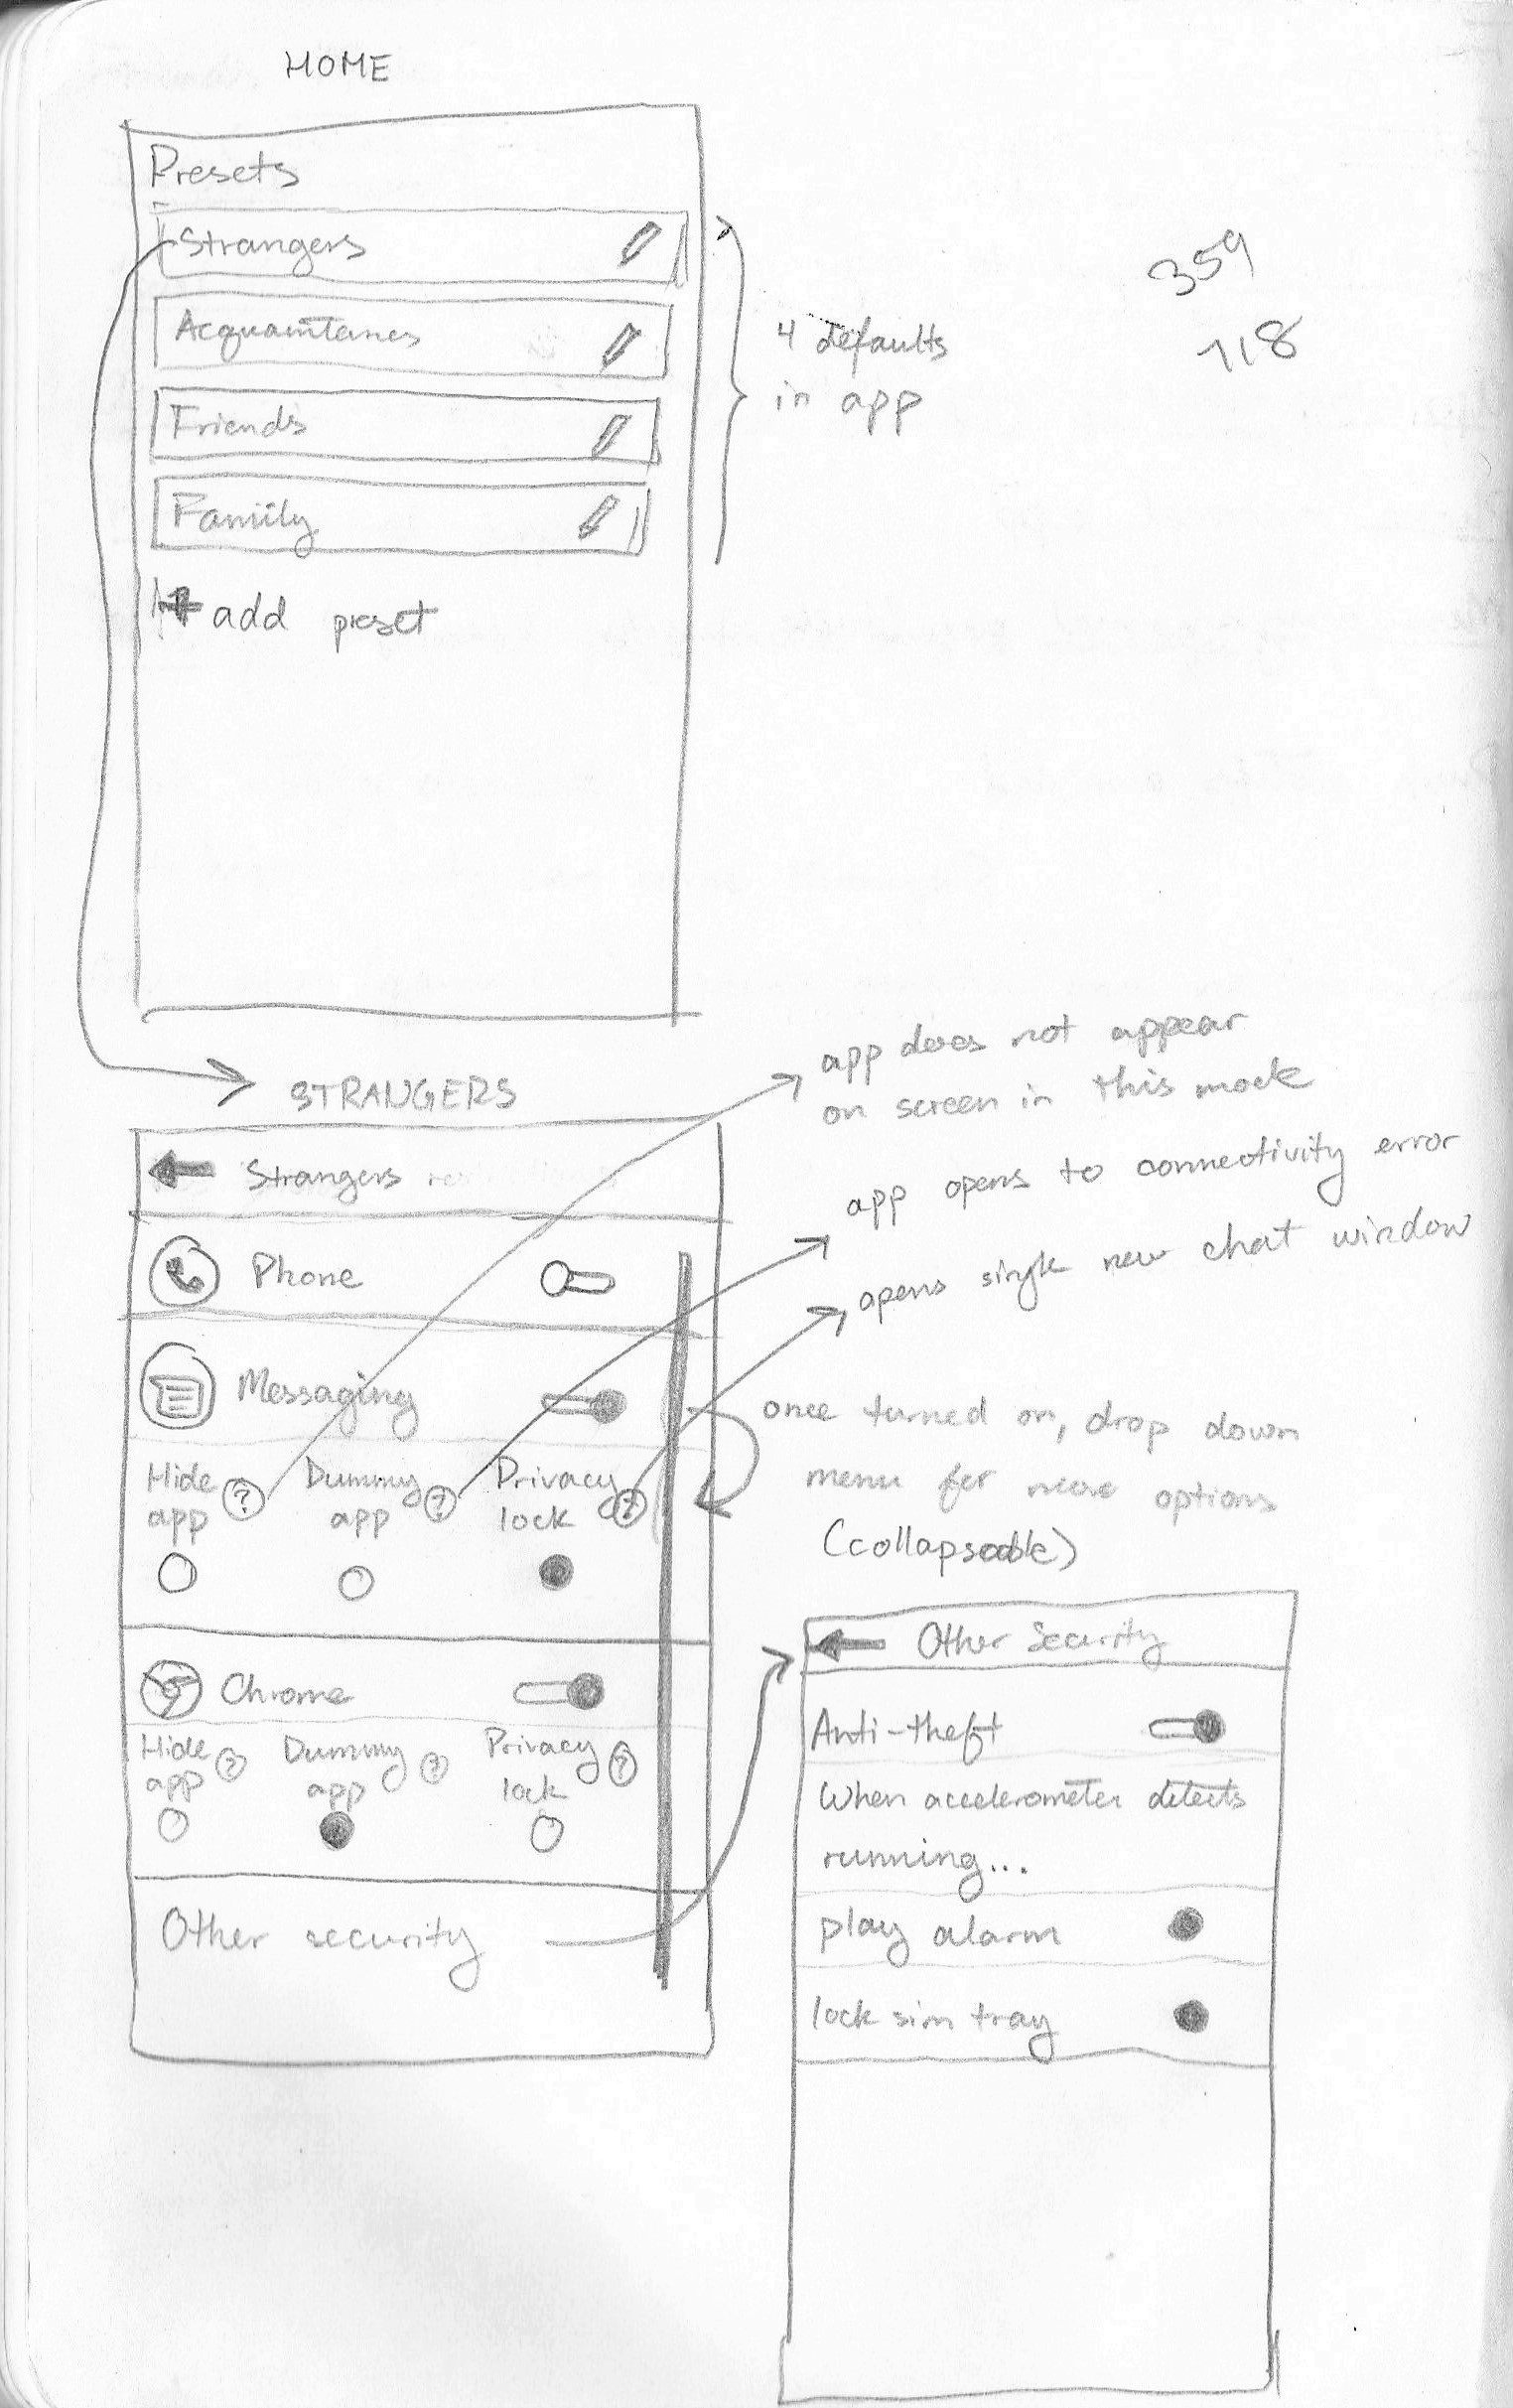 HOME
Presets
Strangers
Acquaintances
Friends
Family
+ add preset
4 defaults
in app
359
718
STRANGERS
← Strangers
Phone
Messaging
Hide app ?
Dummy app ?
Privacy lock ?
Chrome
Hide app ?
Dummy app ?
Privacy lock ?
Other security
app does not appear
on screen in this mode
app opens to connectivity error
opens single new chat window
once turned on, drop down
menu for more options
(collapseable)
← Other Security
Anti-theft
When accelerometer detects
running...
play alarm
lock sim tray